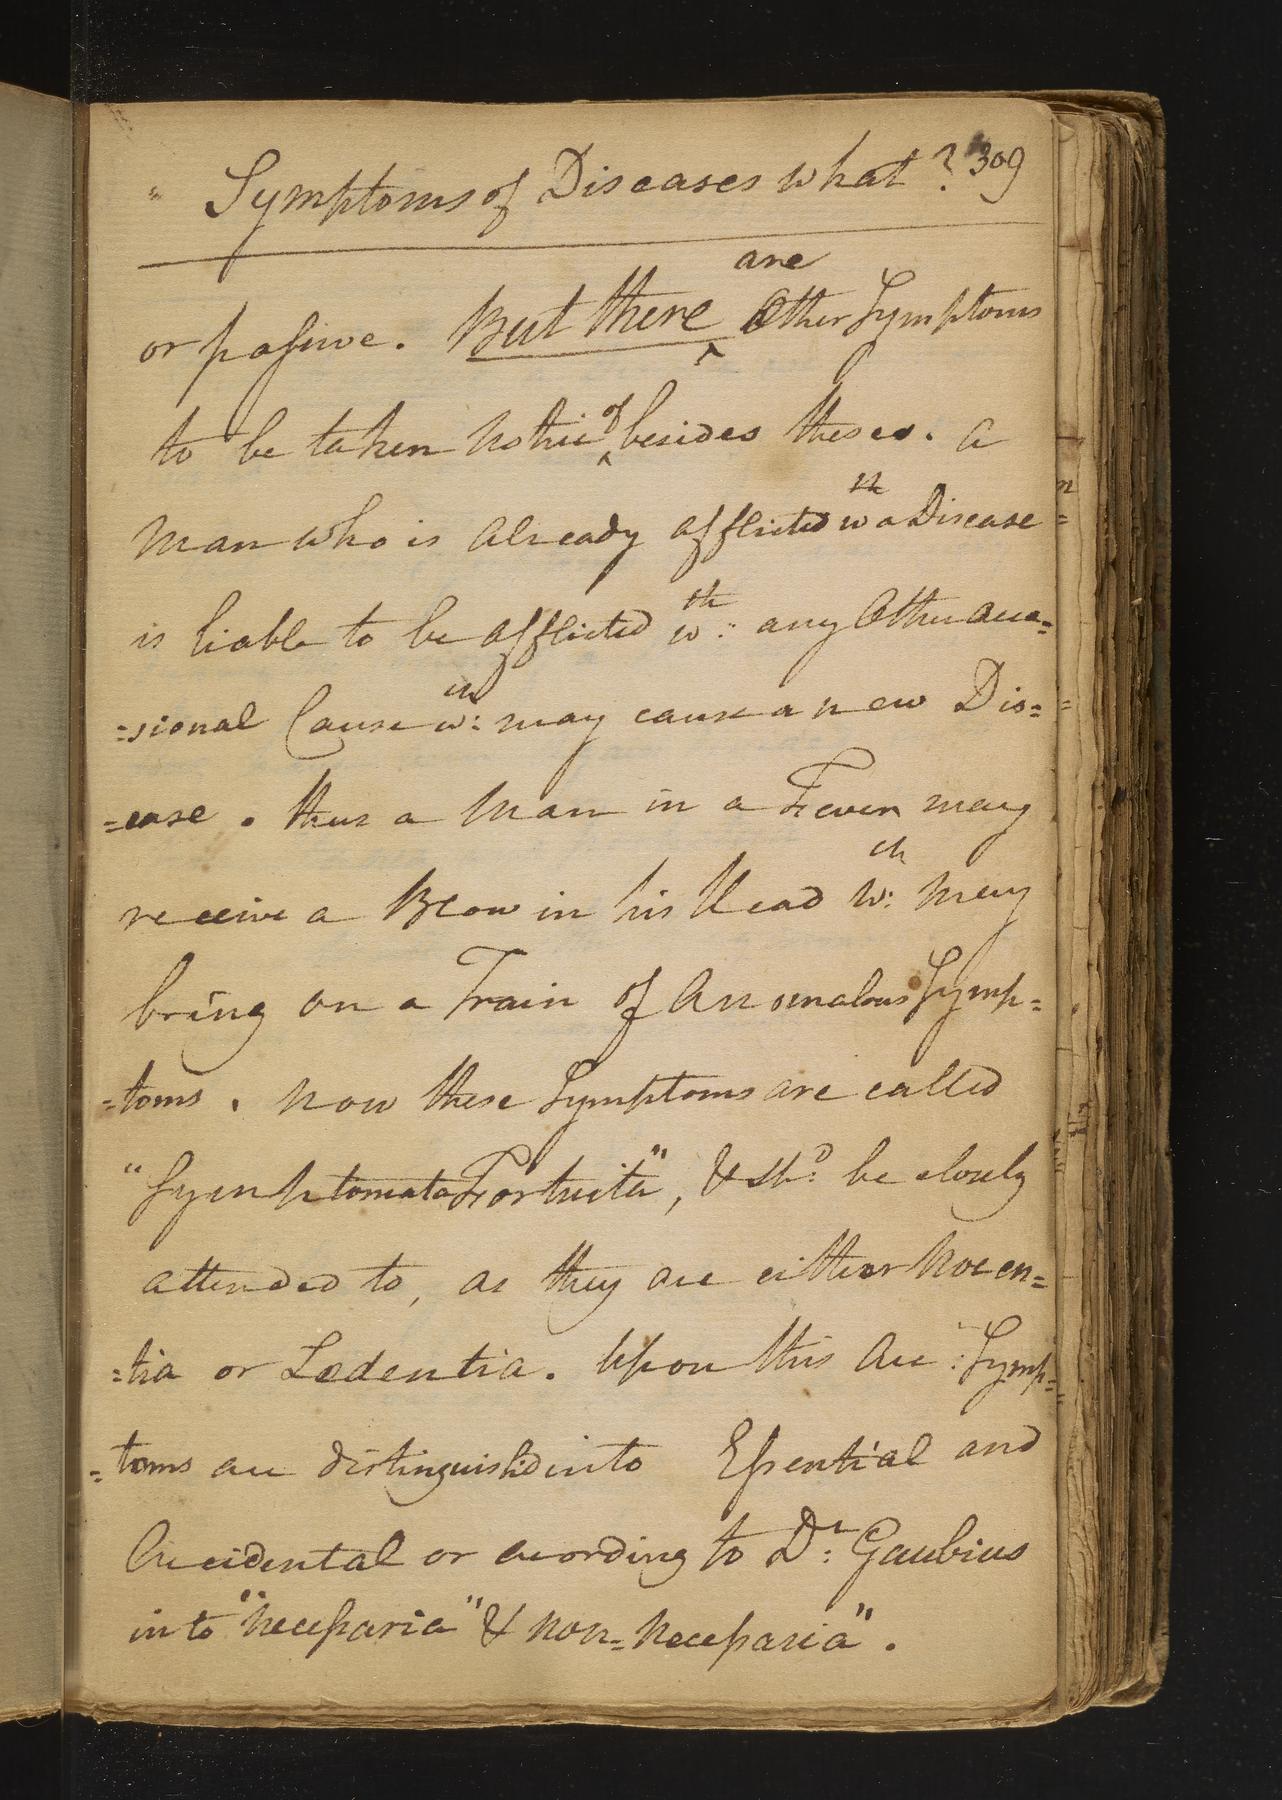 " Symptoms of Diseases what? 309
or passive. But there are Other Symptoms
to be taken Notice of besides these. a
Man who is Already afflicted wth a Disease
is liable to be afflicted wth: any Other occa=
=sional Cause wch: may cause a new Dis=
=ease. thus a Man in a Fever may
receive a Blow in his Head wch: may
bring on a Train of Anomalous Symp=
=toms. Now these Symptoms are called
"Symptomata Fortuita", & shd: be closely
attended to, as they are either Nocen=
=tia or Ledentia. Upon this Acc: Symp=
=toms are distinguish'd into Essential and
Accidental or acording to Dr: Gaubius
into "Necessaria" & Non=Necessaria".